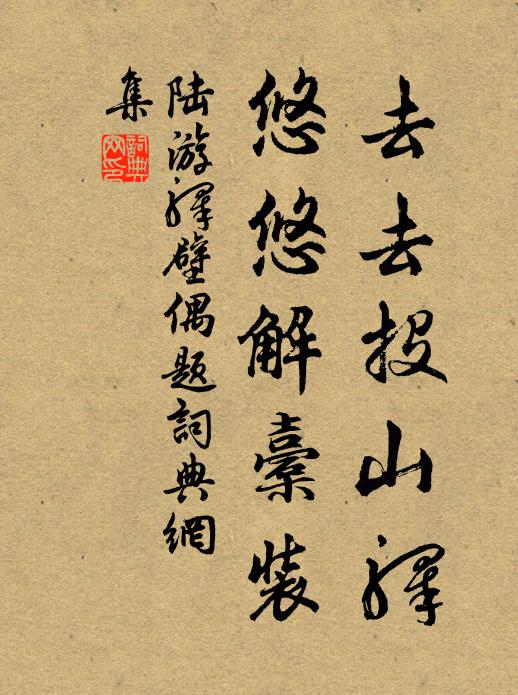 去去投山驛
悠悠解橐裝
陸游驛壁偶題詞典網
集
詞典
网印